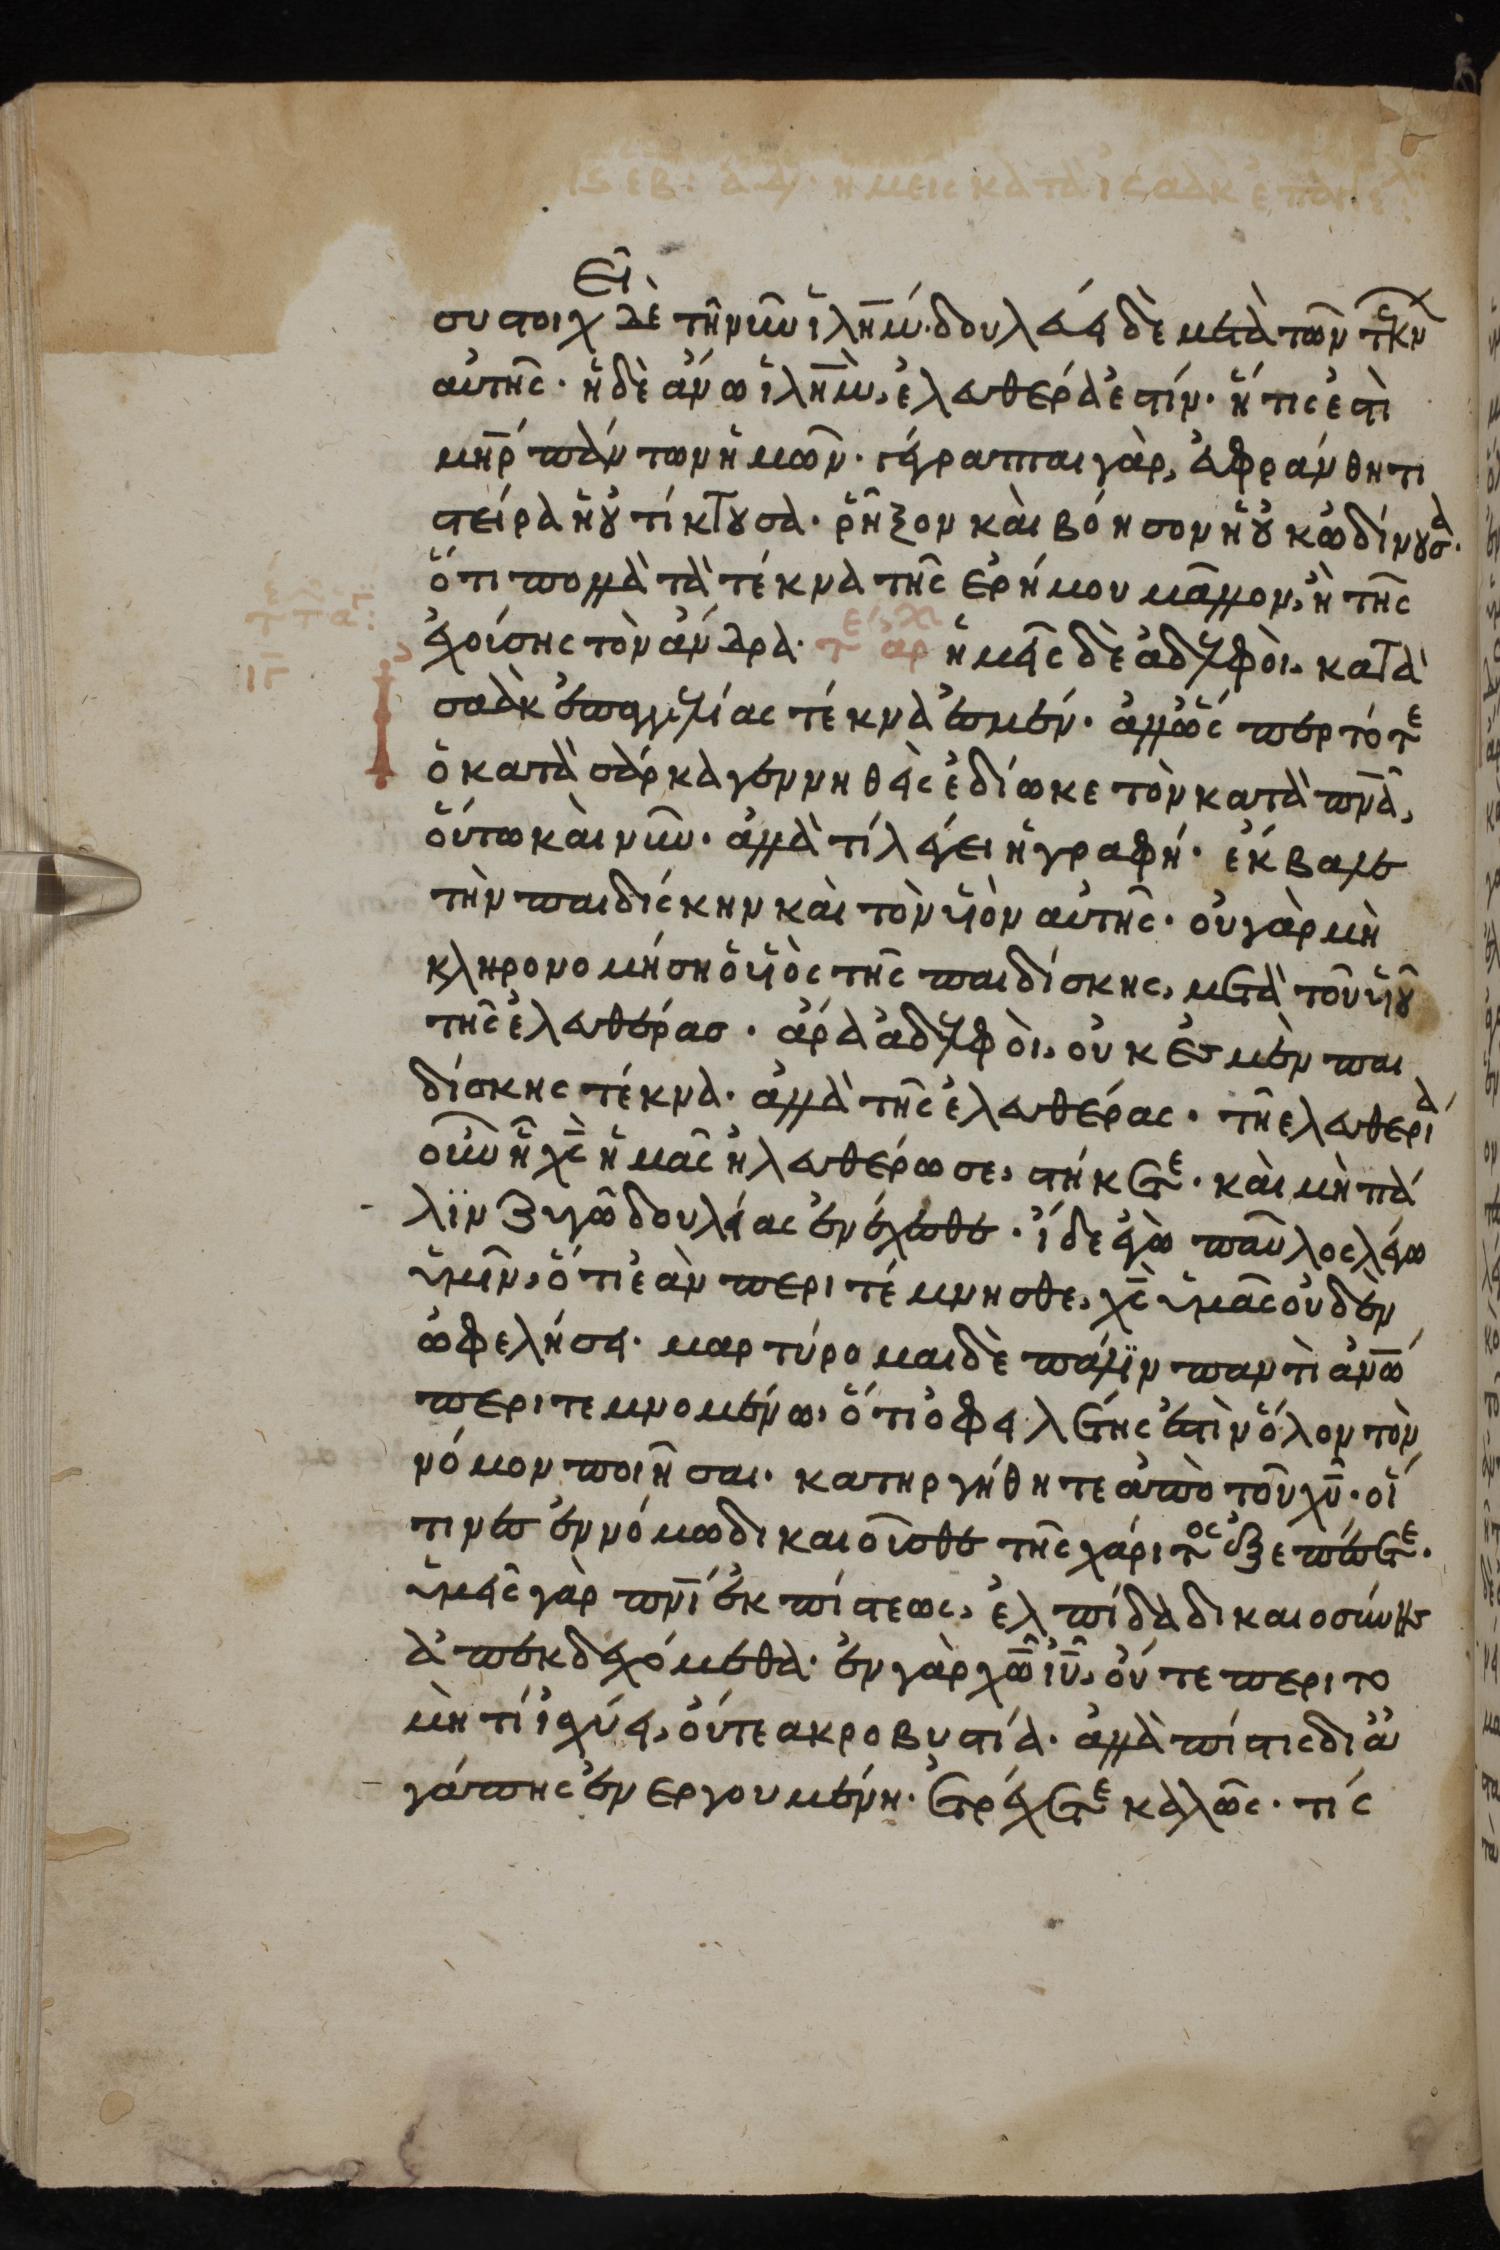 συστοιχεῖ δὲ τῆ νῦν ἱλῆμ· δουλεύει δὲ μετὰ τῶν τέκν
αὐτῆς· ἡ δὲ ἄνω ἱλῆμ, ἐλευθέρα ἐστίν· ἥτις ἐστὶ
μηρ πάντων ἡμῶν· γέγραπται γὰρ, εὐφράνθητι
στείρα ἡ οὐ τίκτουσα· ῥῆξον καὶ βόησον ἡ οὐκ ὠδίνουσα·
ὅτι πολλὰ τὰ τέκνα τῆς ἐρήμου μᾶλλον, ἢ τῆς
ἐχούσης τὸν ἄνδρα· ἡμεῖς δὲ ἀδελφοὶ, κατὰ
ἰσαὰκ ἐπαγγελίας τέκνα ἐσμέν· ἀλλ' ὥσπερ τότε
ὁ κατὰ σάρκα γεννηθεὶς ἐδίωκε τὸν κατὰ πνα,
οὕτω καὶ νῦν· ἀλλὰ τί λέγει ἡ γραφή· ἔκβαλε
τὴν παιδίσκην καὶ τὸν υἱὸν αὐτῆς· οὐ γὰρ μὴ
κληρονομήση ὁ υἱὸς τῆς παιδίσκης, μετὰ τοῦ υἱοῦ
τῆς ἐλευθέρας· ἄρα ἀδελφοὶ, οὐκ ἐσμὲν παι
δίσκης τέκνα· ἀλλὰ τῆς ἐλευθέρας· τῆ ἐλευθερία
οὖν ἧ χς ἡμᾶς ἠλευθέρωσε, στήκετε· καὶ μὴ πά
λϊν ζυγῶ δουλείας ἐνέχεσθε· ἴδε ἐγὼ παῦλος λέγω
ὑμῖν, ὅτι ἐὰν περιτέμνησθε, χς ὑμᾶς οὐδὲν
ὠφελήσει· μαρτύρομαι δὲ πάλϊν παντὶ ἀνω
περιτεμνομένω, ὅτι ὀφειλέτης ἐστὶν ὅλον τὸν
νόμον ποιῆσαι· κατηργήθητε ἀπὸ τοῦ χυ· οἵ
τινες ἐν νόμω δικαιοῦσθε τῆς χάριτος ἐξεπέσετε·
ἡμεῖς γὰρ πνι ἐκ πίστεως, ἐλπίδα δικαιοσύνης
ἀπεκδεχόμεθα· ἐν γὰρ χω ιυ, οὔτε περιτο
μὴ τί ἰσχύει, οὔτε ἀκροβυστία· ἀλλὰ πίστις δι ἀ
γάπης ἐνεργουμένη· ἐτρέχετε καλῶς· τίς